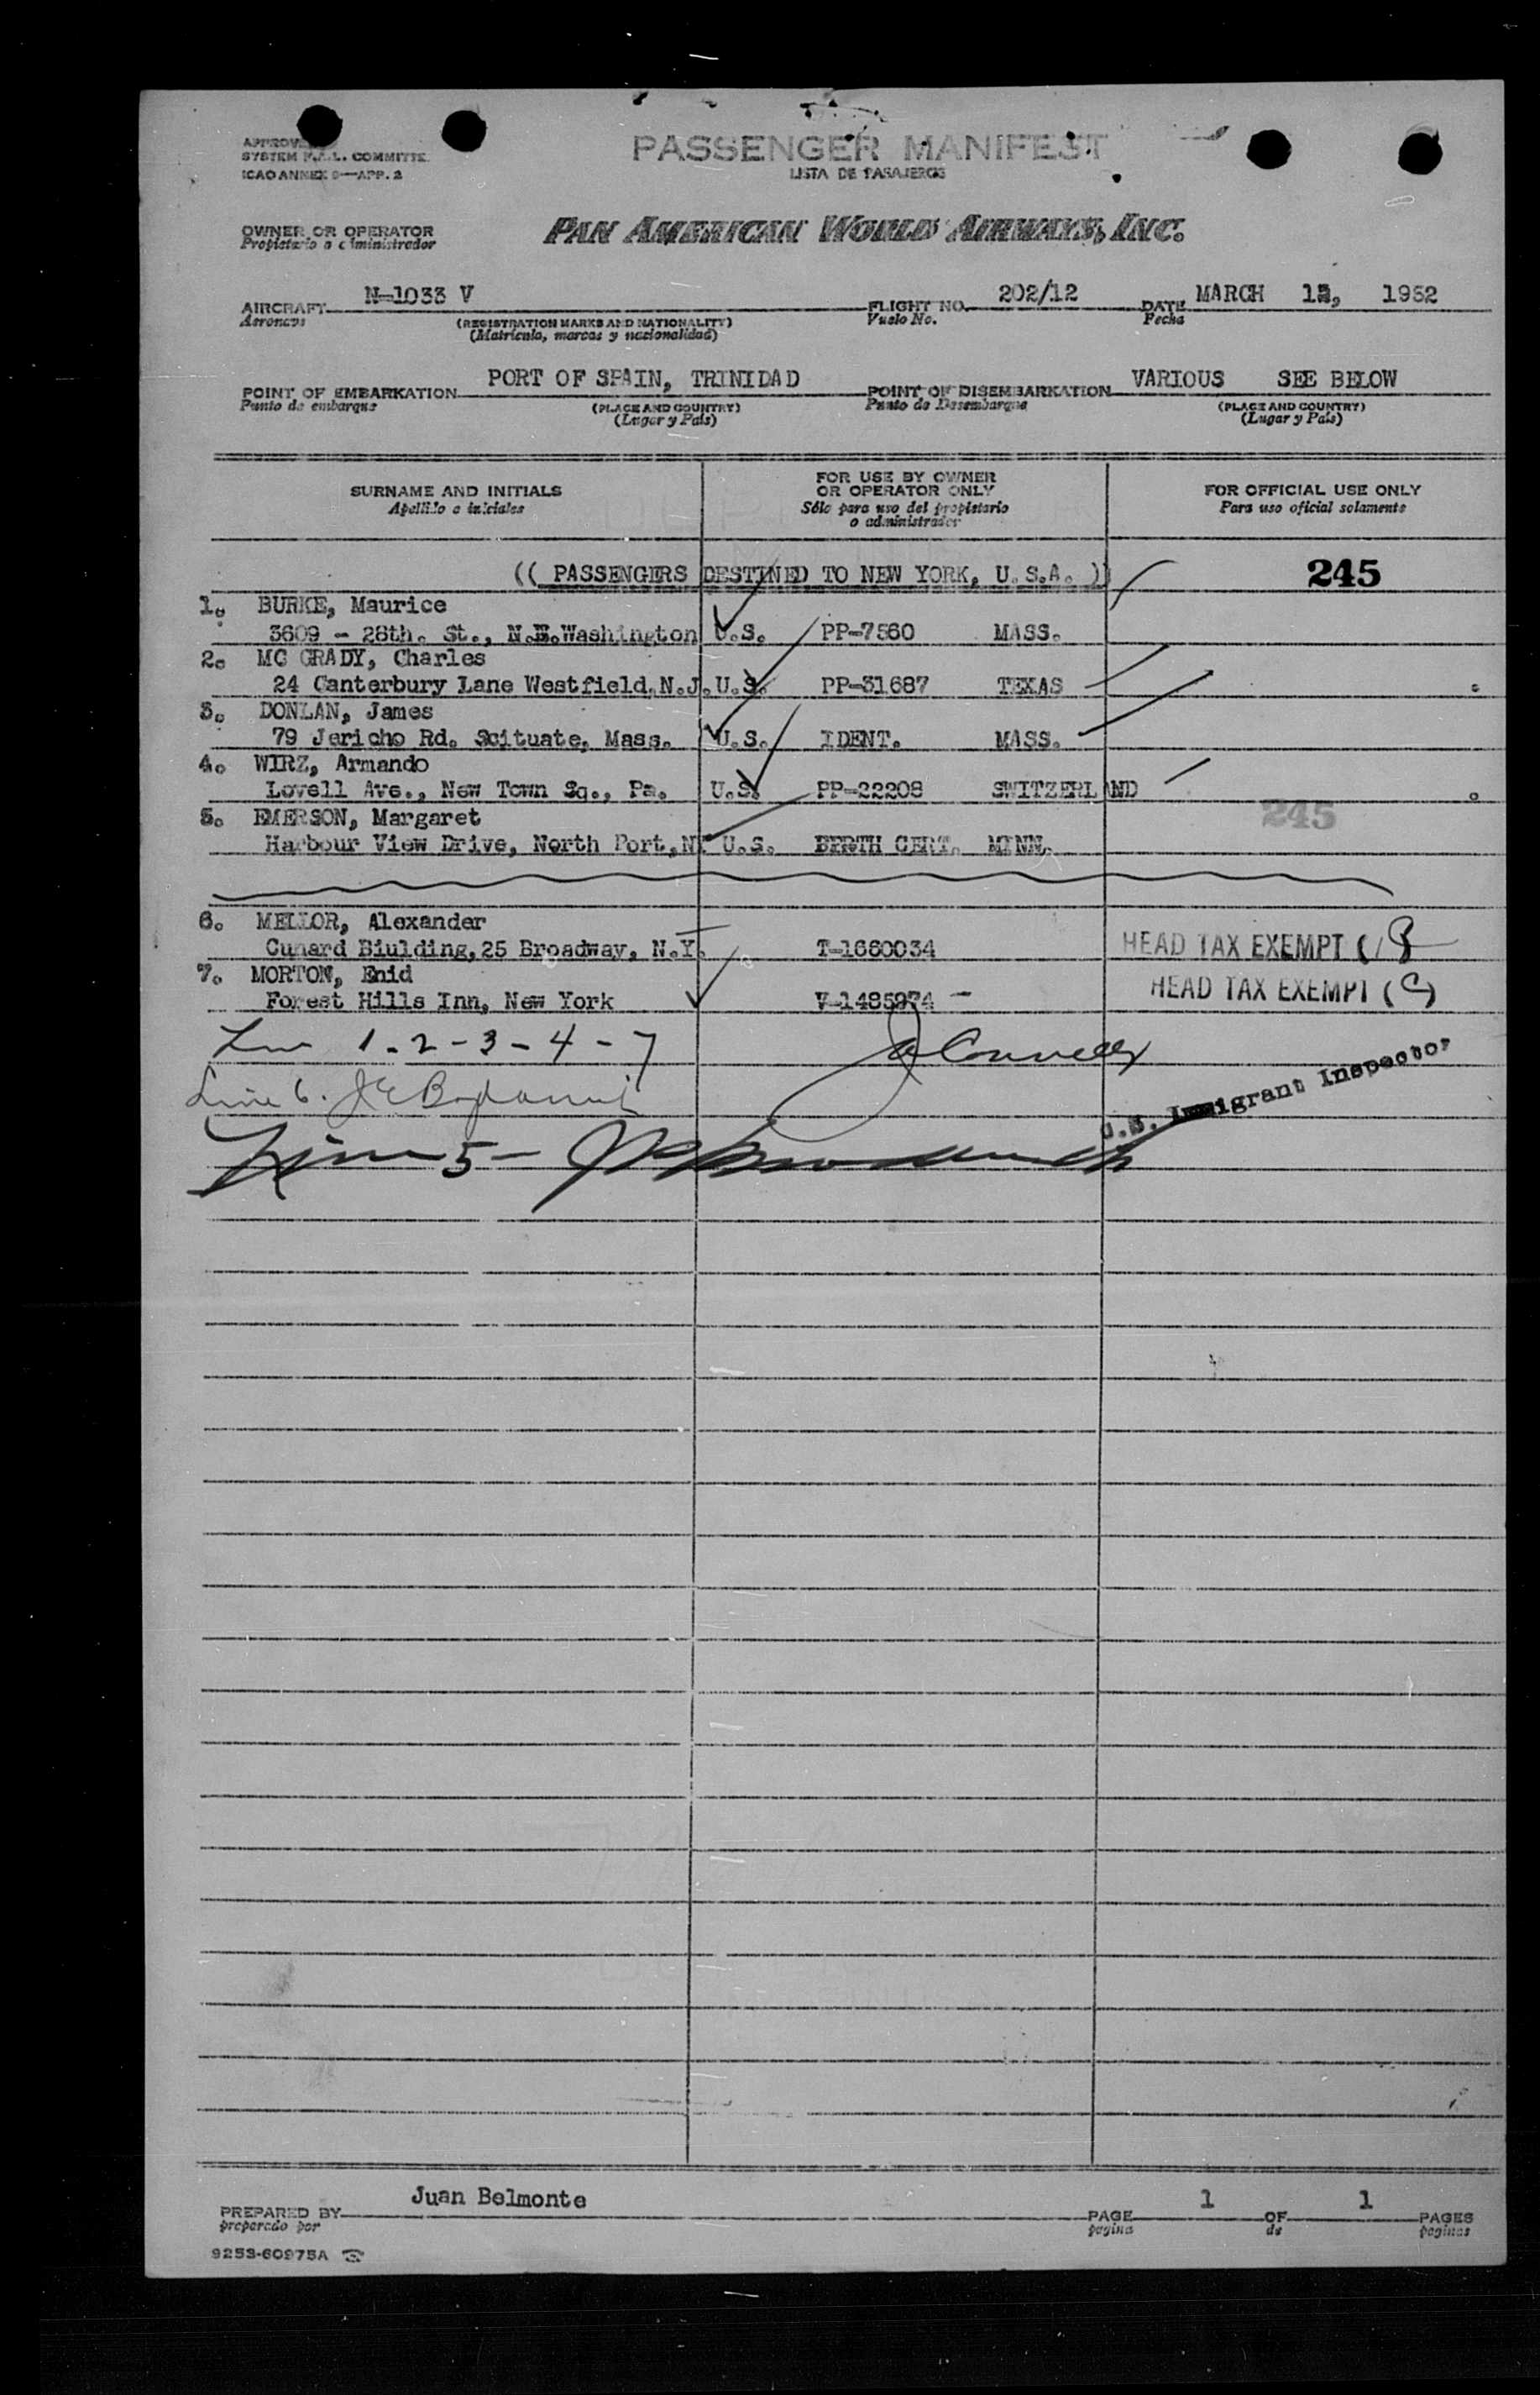 APPROVE
SYSTEM F.A.L. COMMITTE
ICAO ANNEX 9—APP. 2
PASSENGER MANIFEST
LISTA DE PASAJEROS
OWNER OR OPERATOR
Propietario o administrador
PAN AMERICAN WORLD AIRWAYS, INC.
AIRCRAFT N-1033 V FLIGHT NO. 202/12 DATE MARCH 12, 1952
Aeronave (REGISTRATION MARKS AND NATIONALITY) Vuelo No. Fecha
(Matrícula, marcas y nacionalidad)
POINT OF EMBARKATION PORT OF SPAIN, TRINIDAD POINT OF DISEMBARKATION VARIOUS SEE BELOW
Punto de embarque (PLACE AND COUNTRY) Punto de Desembarque (PLACE AND COUNTRY)
(Lugar y País) (Lugar y País)
SURNAME AND INITIALS
Apellido e iniciales
FOR USE BY OWNER
OR OPERATOR ONLY
Sólo para uso del propietario
o administrador
FOR OFFICIAL USE ONLY
Para uso oficial solamente
(( PASSENGERS DESTINED TO NEW YORK, U.S.A. )) 245
1. BURKE, Maurice
3609 - 28th. St., N.E.Washington U.S. PP-7560 MASS.
2. MC GRADY, Charles
24 Canterbury Lane Westfield,N.J. U.S. PP-31687 TEXAS
3. DONLAN, James
79 Jericho Rd. Scituate, Mass. U.S. IDENT. MASS.
4. WIRZ, Armando
Lovell Ave., New Town Sq., Pa. U.S. PP-22208 SWITZERLAND
245
5. EMERSON, Margaret
Harbour View Drive, North Port,NY U.S. BIRTH CERT. MINN.
6. MELLOR, Alexander
Cunard Biulding,25 Broadway, N.Y. T-1660034 HEAD TAX EXEMPT (
7. MORTON, Enid
Forest Hills Inn, New York V-1485974 - HEAD TAX EXEMPT (C)
Line 1-2-3-4-7
Line 6.
U.S. Immigrant Inspector
Line 5-
PREPARED BY Juan Belmonte PAGE 1 OF 1 PAGES
preparado por pagina de paginas
9253-60975A